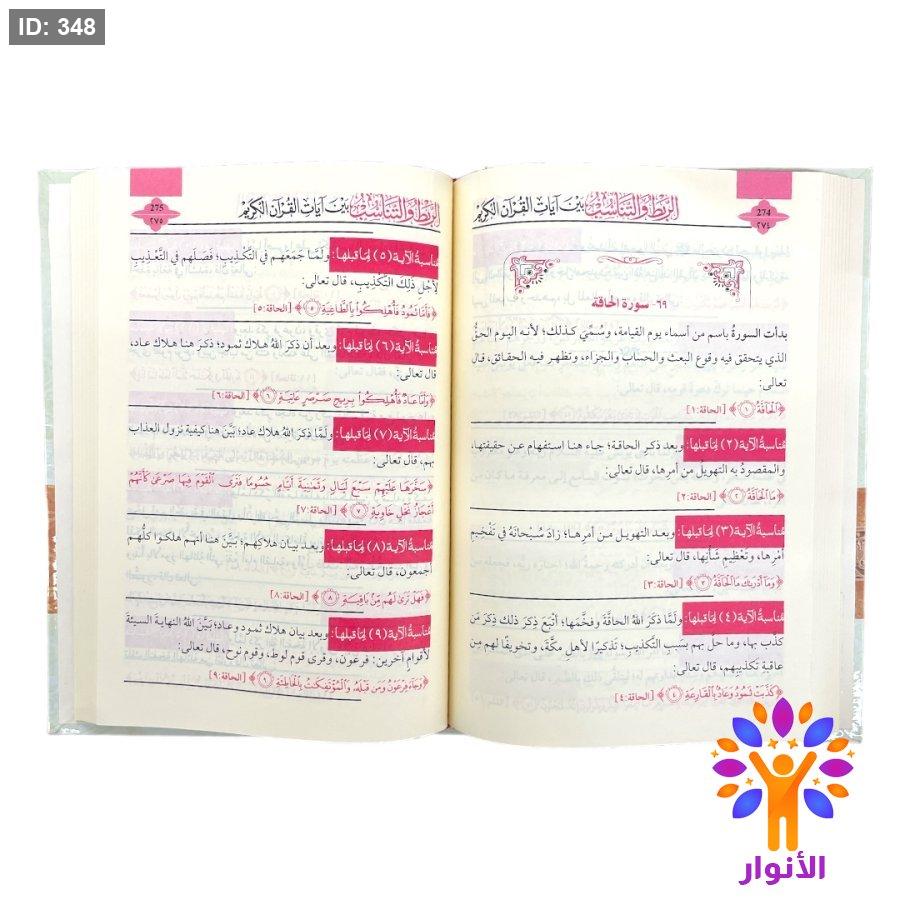 ID: 348
274
٢٧٤
الربط والتناسب بين آيات القرآن الكريم
٦٩- سورة الحاقة
بدأت السورةُ باسم من أسماء يوم القيامة، وسُمِّيَ كذلك؛ لأنه اليوم الحقُّ
الذي يتحقق فيه وقوع البعث والحساب والجزاء، وتظهر فيه الحقائق، قال
تعالى:
﴿ٱلۡحَآقَّةُ ١﴾ [الحاقة:١]
مناسبةُ الآية (٢) لِمَا قبلها: وبعد ذكر الحاقة؛ جاء هنا استفهام عن حقيقتها،
والمقصودُ به التهويلُ من أمرها، قال تعالى:
﴿مَا ٱلۡحَآقَّةُ ٢﴾ [الحاقة:٢]
مناسبةُ الآية (٣) لِمَا قبلها: وبعد التهويل من أمرِها؛ زادَ سُبحانَهُ في تفْخيمِ
أمْرِها، وتعْظِيمِ شَأنِها، قال تعالى:
﴿وَمَآ أَدۡرَىٰكَ مَا ٱلۡحَآقَّةُ ٣﴾ [الحاقة:٣]
مناسبةُ الآية (٤) لِمَا قبلها: ولَمَّا ذكَرَ اللهُ الحاقَّةَ وفخَّمَها؛ أتْبَعَ ذِكرَ ذلك ذِكرَ مَن
كذَّب بها، وما حلَّ بهم بسَبَبِ التَّكذيبِ؛ تَذكيرًا لأهلِ مكَّةَ، وتخويفًا لهم مِن
عاقبةِ تكذيبِهم، قال تعالى:
﴿كَذَّبَتۡ ثَمُودُ وَعَادُۢ بِٱلۡقَارِعَةِ ٤﴾ [الحاقة:٤]
275
٢٧٥
الربط والتناسب بين آيات القرآن الكريم
مناسبةُ الآية (٥) لِمَا قبلها: ولَمَّا جَمَعَهم في التَّكْذيبِ؛ فَصَلَهم في التَّعْذِيبِ
لأجْلِ ذلِكَ التَّكْذِيبِ، قال تعالى:
﴿فَأَمَّا ثَمُودُ فَأُهۡلِكُواْ بِٱلطَّاغِيَةِ ٥﴾ [الحاقة:٥]
مناسبةُ الآية (٦) لِمَا قبلها: وبعد أن ذكرَ اللهُ هلاك ثمود؛ ذكرَ هنا هلاك عاد،
قال تعالى:
﴿وَأَمَّا عَادٞ فَأُهۡلِكُواْ بِرِيحٖ صَرۡصَرٍ عَاتِيَةٖ ٦﴾ [الحاقة:٦]
مناسبةُ الآية (٧) لِمَا قبلها: ولَمَّا ذكَرَ اللهُ هلاك عاد؛ بيَّنَ هنا كيفية نزول العذاب
بهم، قال تعالى:
﴿سَخَّرَهَا عَلَيۡهِمۡ سَبۡعَ لَيَالٖ وَثَمَٰنِيَةَ أَيَّامٍ حُسُومٗاۖ فَتَرَى ٱلۡقَوۡمَ فِيهَا صَرۡعَىٰ كَأَنَّهُمۡ
أَعۡجَازُ نَخۡلٍ خَاوِيَةٖ ٧﴾ [الحاقة:٧]
مناسبةُ الآية (٨) لِمَا قبلها: وبعد بيان هلاكِهم؛ بيَّنَ هنا أنهم هلكوا كلُّهم
أجمعون، قال تعالى:
﴿فَهَلۡ تَرَىٰ لَهُم مِّنۢ بَاقِيَةٖ ٨﴾ [الحاقة:٨]
مناسبةُ الآية (٩) لِمَا قبلها: وبعد بيان هلاك ثمود وعاد؛ بيَّنَ اللهُ النهايةَ السيئةَ
لأقوامٍ آخرين: فرعون، وقرى قوم لوط، وقوم نوح، قال تعالى:
﴿وَجَآءَ فِرۡعَوۡنُ وَمَن قَبۡلَهُۥ وَٱلۡمُؤۡتَفِكَٰتُ بِٱلۡخَاطِئَةِ ٩﴾ [الحاقة:٩]
الأنوار